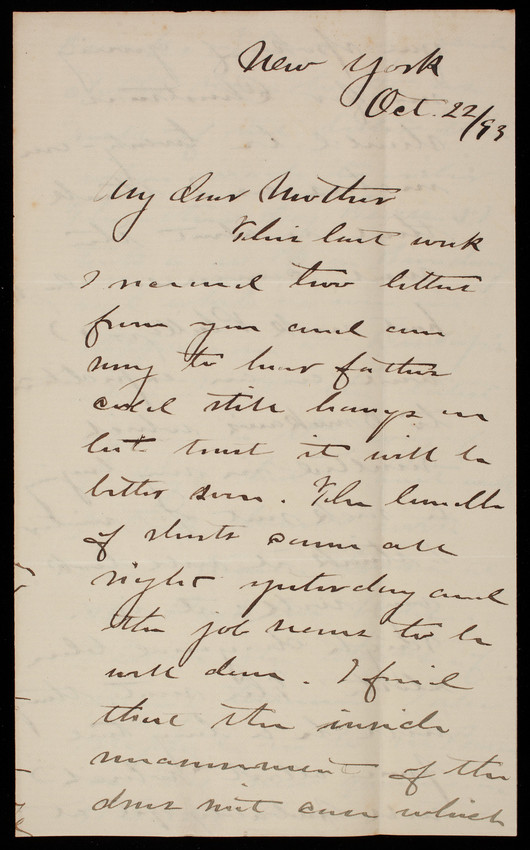 New York
Oct. 22/93
My dear Mother
This last week
I received two letters
from you and am
sorry to hear father
cold still hangs on
but trust it will be
better soon. The bundle
of shirts came all
right yesterday and
the job seems to be
well done. I find
that the inside
measurement of the
does not come which